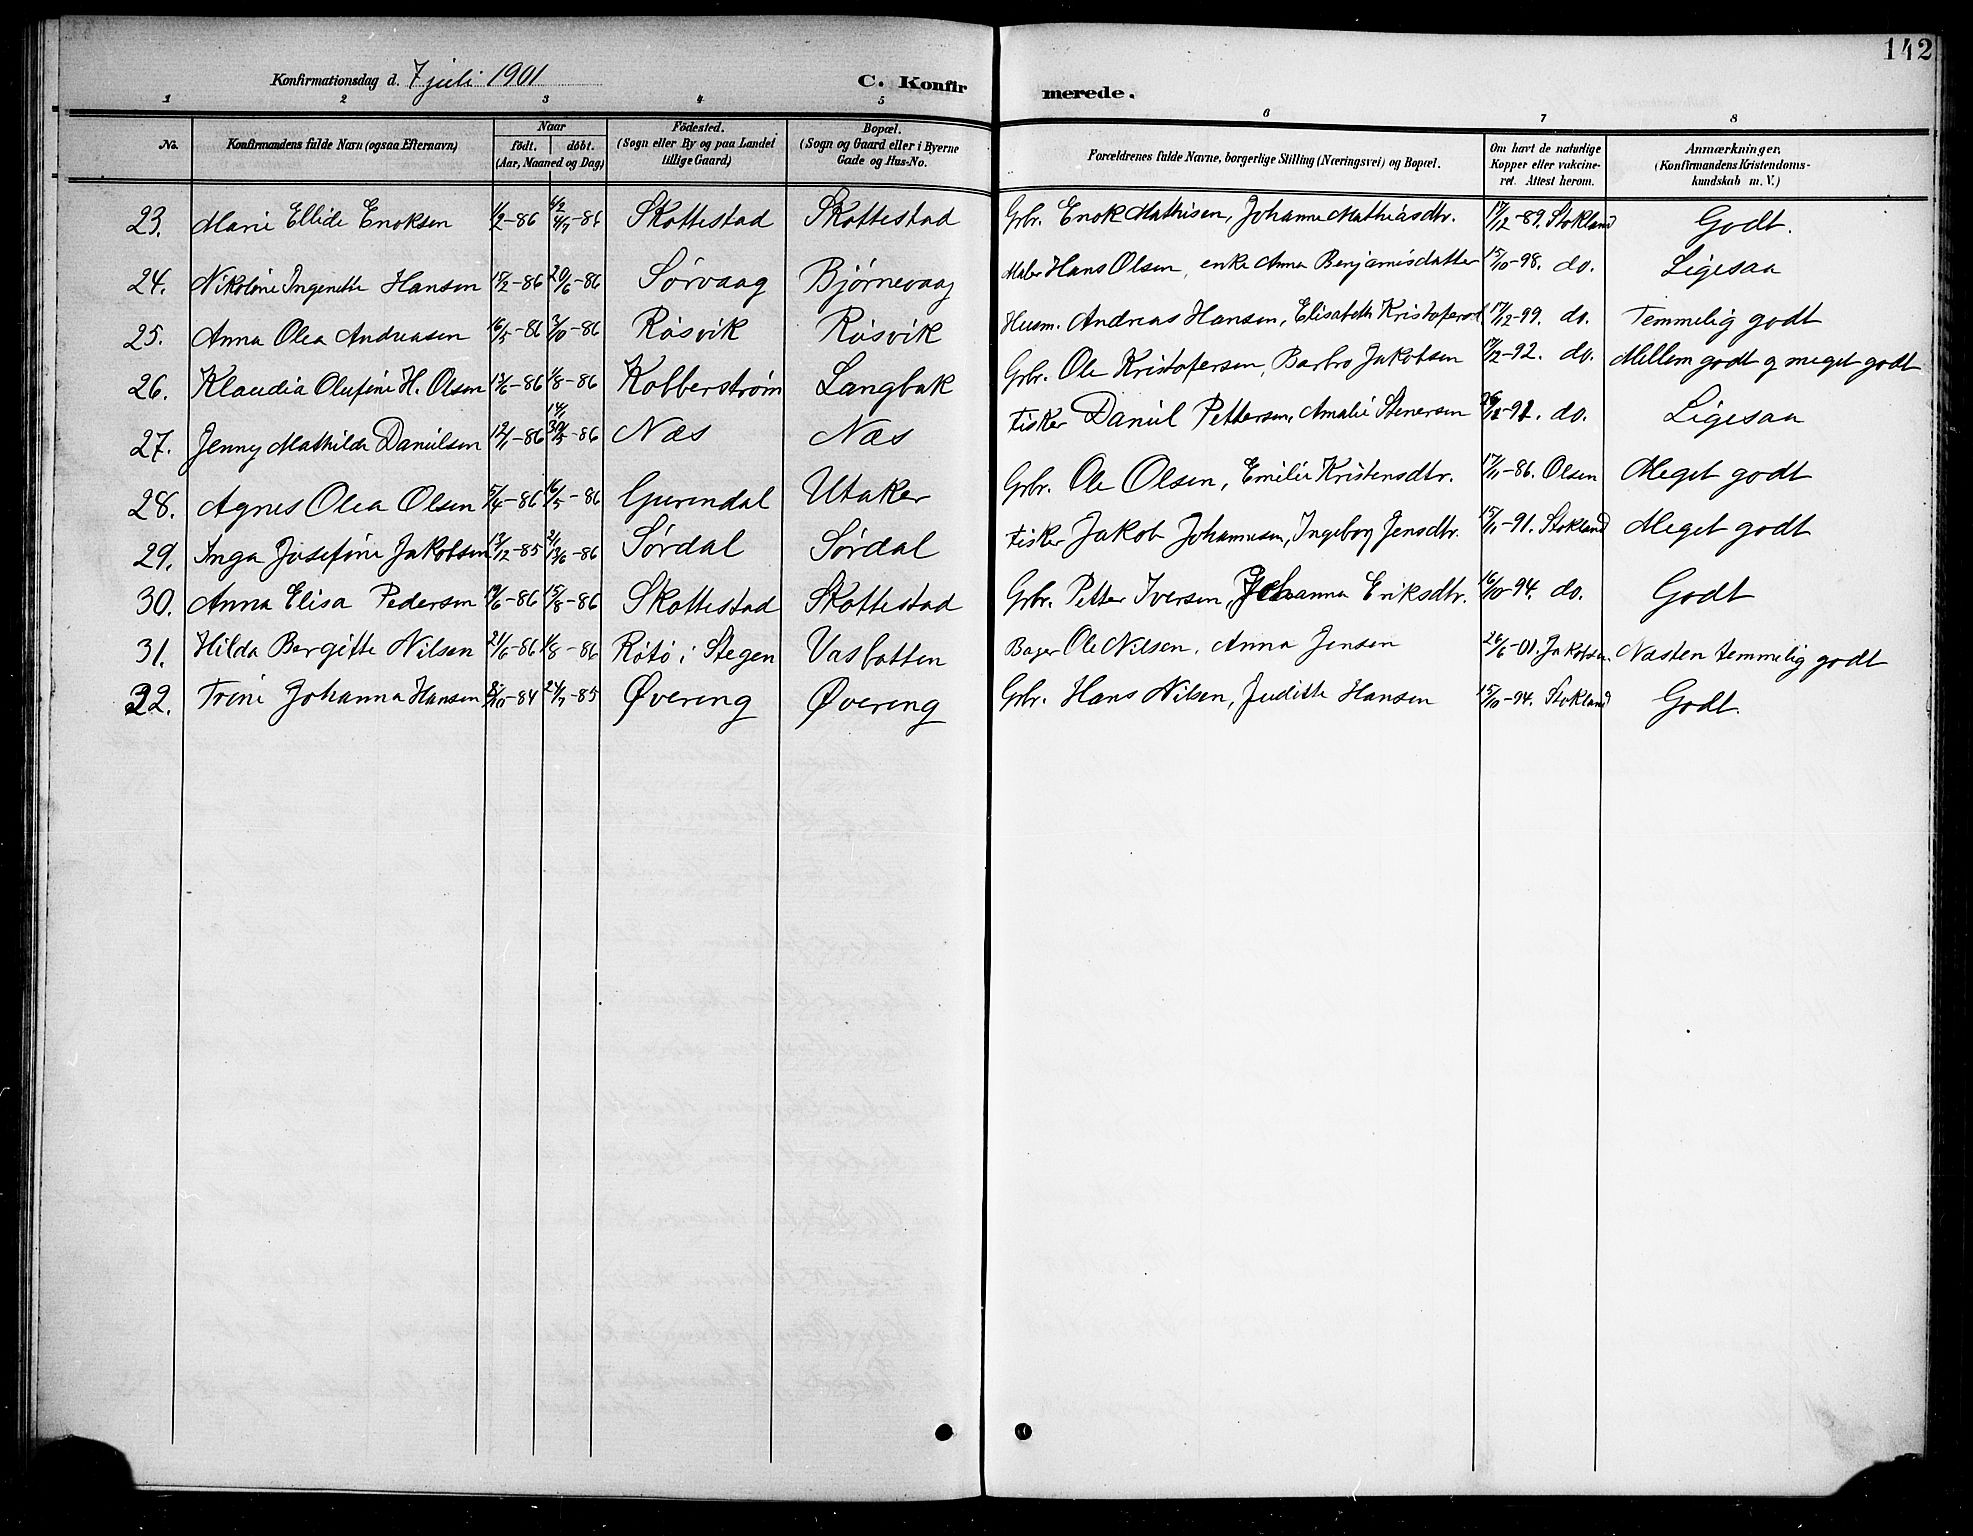 142
Konfirmationsdag d. 7 juli 1901
C. Konfirmerede.
1 2 3 4 5 6 7 8
No. Konfirmandens fulde Navn (ogsaa Efternavn) Naar født. døbt. (Aar, Maaned og Dag) Fødested. (Sogn eller By og paa Landet tillige Gaard) Bopæl. (Sogn og Gaard eller i Byerne Gade og Hus-No. Forældrenes fulde Navne, borgerlige Stilling (Næringsvei) og Bopæl. Om havt de naturlige Kopper eller vakcineret. Attest herom. Anmærkninger. (Konfirmandens Kristendomskundskab m. V.)
23. Marie Ellide Enoksen 1/2-86 -86 Skottestad Skottestad Grbr. Enok Mathisen, Johanna Mathiasdtr. 17/12-89. Stokland Godt.
24. Nikoline Ingenette Hansen 15/2-86 20/6-86 Sørvaag Bjørnevaag Maler Hans Olsen, enke Anna Benjamisdatter 15/10-98. do. Ligesaa
25. Anna Olea Andreasen 16/5-86 3/10-86 Røsvik Røsvik Husm. Andreas Hansen, Elisabeth Kristofersd 17/12-99. do. Temmelig godt
26. Klaudia Olufine H. Olsen 13/6-86 1/8-86 Kobberstrøm Langbak Grbr. Ole Kristofersen, Barbro Jakobsen 17/12-92. do. Mellem godt og meget godt
27. Jenny Mathilde Danielsen 12/1-86 14/1 30/5-86 Næs Næs Fisker Daniel Pettersen, Amalie Stenersen -91. do. Ligesaa
28. Agnes Olea Olsen 5/4-86 16/5-86 Gurendal Utaker Grbr. Ole Olsen, Emilie Kristensdtr. 17/11-86. Olsen Meget godt
29. Inga Josefine Jakobsen 13/12-85 2/1 13/6-86 Sørdal Sørdal Fisker Jakob Johannesen, Ingeborg Jensdtr. 15/11-91. Stokland Meget godt
30. Anna Elisa Pedersen 19/6-86 15/8-86 Skottestad Skottestad Grbr. Petter Iversen, Johanna Eriksdtr. 16/10-94. do. Godt
31. Hilda Bergitte Nilsen 21/6-86 1/8-86 Røtø i Stegen Vasbotten Bager Ole Nilsen, Anna Jensen 26/6-01. Jakobsen. Næsten temmelig godt
32. Trine Johanna Hansen -84 24/7-85 Øvereng Øvereng Grbr. Hans Nilsen, Judithe Hansen 15/10-94. Stokland Godt.